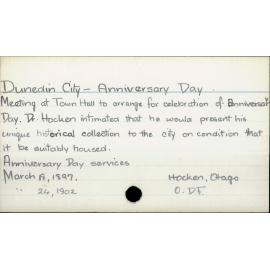 Dunedin City - Anniversary Day.
Meeting at Town Hall to arrange for celebration of Anniversary
Day. Dr. Hocken intimated that he would present his
unique historical collection to the city on condition that
it be suitably housed.
Anniversary Day services
March , 1897. Hocken, Otago
" 24, 1902 O.D.T.